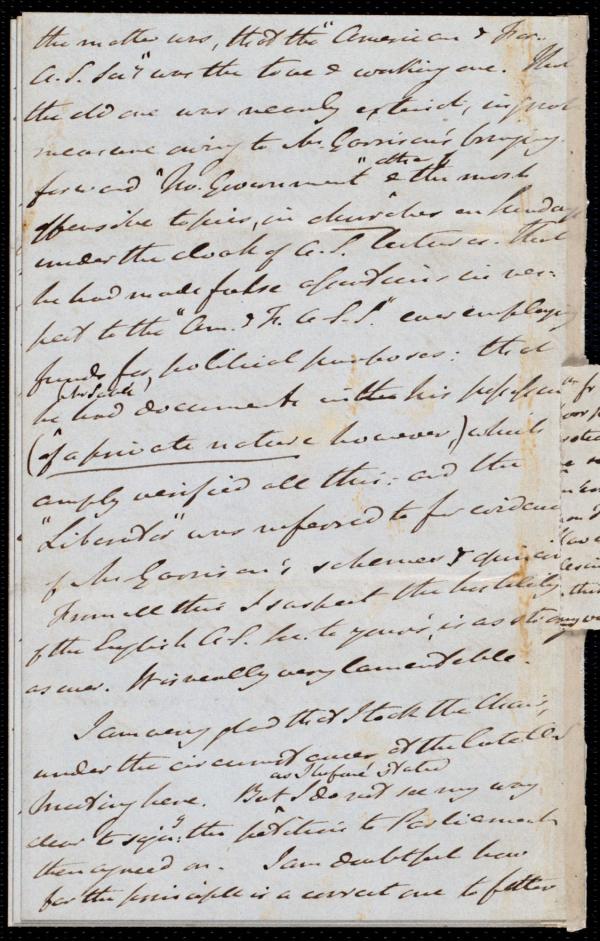 the matter was, that the "American & For.
A.S. Socy" was the true & working one. That
the old one was nearly extinct, in great
measure owing to Mr Garrison's bringing
forward "No. Government" & other the most
offensive topics, in churches on Sundays
under the cloak of A.S. lectures. That
he had made false assertions in res-
pect to the "Am. & F. A.S.S." ever employing
funds for political purposes: that
he had documents in his possession
(of a private nature however,) which
amply verified all this: and the
"Liberator" was referred to for evidence
of Mr Garrison's schemes & opinions
From all this I suspect the hostility
of the English A.S. Soc. to yours, is as strong
as ever. It is really very lamentable.
I am very glad that I took the Chair,
under the circumstances, at the
as I before stated
Meeting here. But I do not see my way
clear to sign the petition to Parliament
then agreed on. I am doubtful how
far the principle is a correct one to fetter